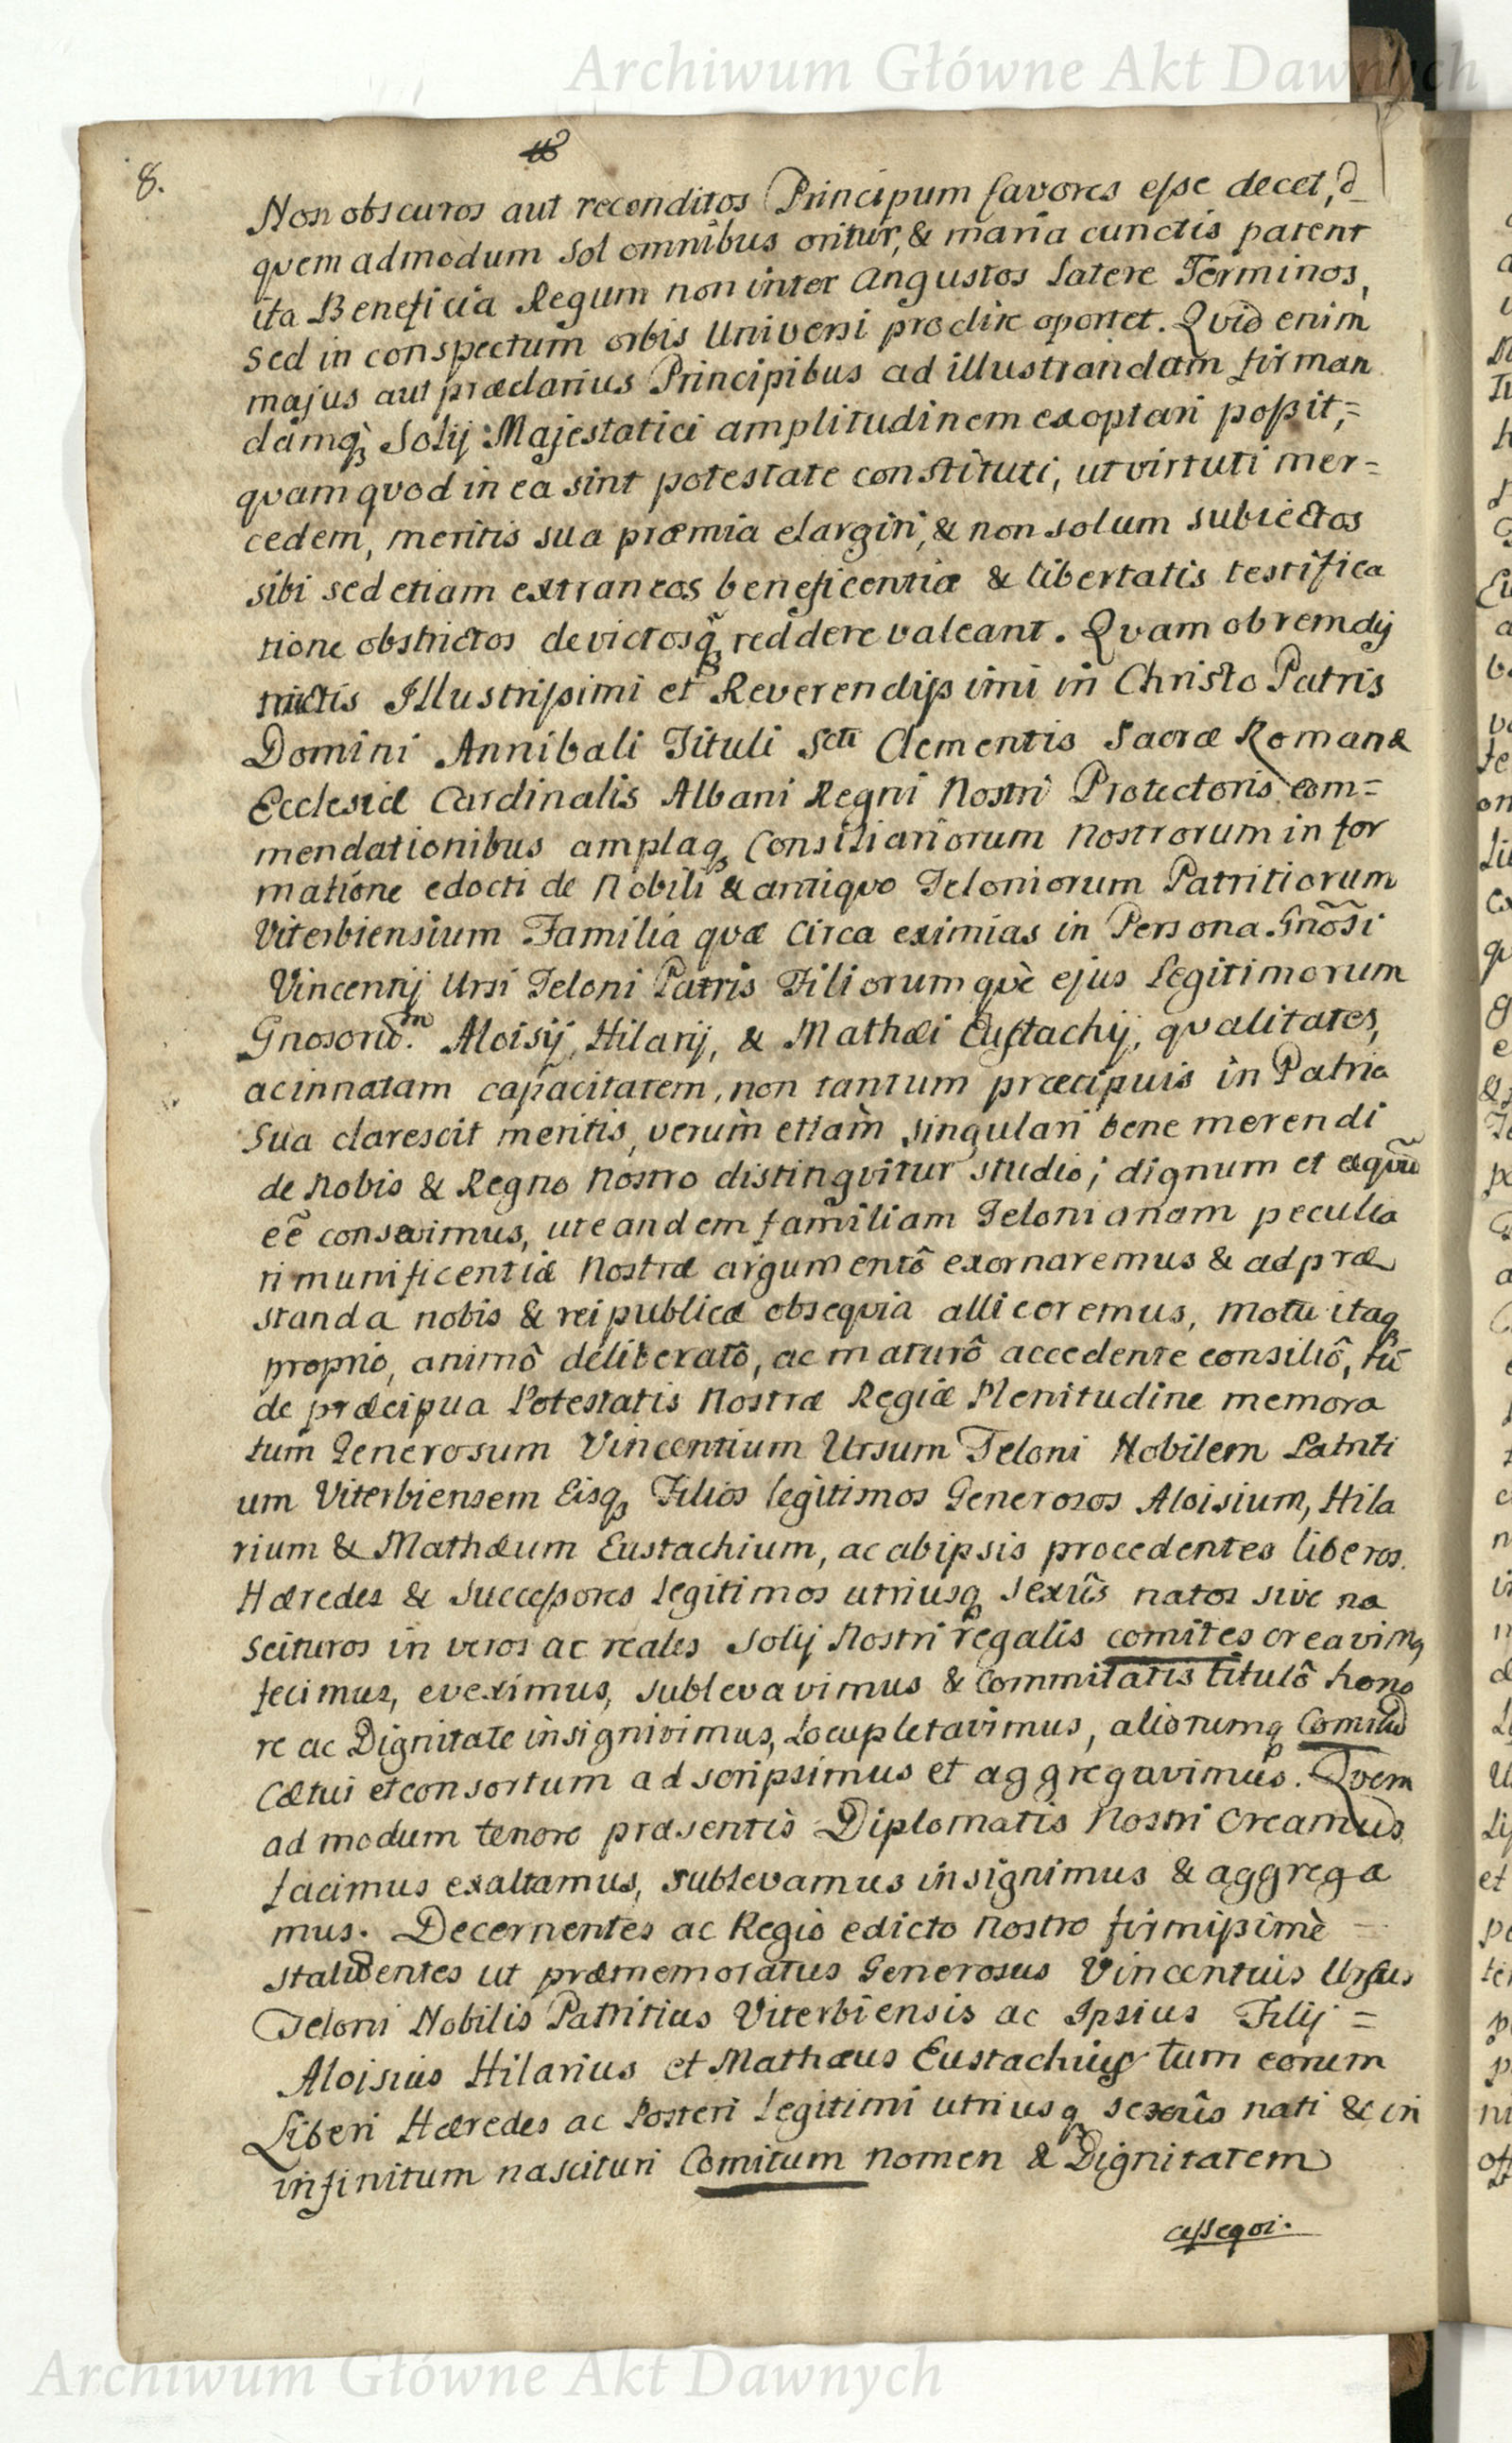 Archiwum Główne Akt Dawnych
8.
Non obscuros aut reconditos Principum favores esse decet, &
quem admodum Sol omnibus oritur, & maria cunctis patent
ita Beneficia Regum non inter Angustos Latere Terminos,
Sed in conspectum orbis Universi prodire oportet. Quid enim
majus aut præclarius Principibus ad illustrandam firman
damq; Solij Majestatici amplitudinem exoptari possit,=
quam quod in ea sint potestate constituti, ut virtuti mer=
cedem, meritis sua præmia elargiri, & non solum subiectos
sibi sed etiam extraneos beneficentiæ & libertatis testifica
tione obstrictos devictosq; reddere valeant. Quam ob rem dij
nictis Illustrissimi et Reverendissimi in Christo Patris
Domini Annibali Tituli Scti Clementis Sacræ Romanæ
Ecclesiæ Cardinalis Albani Regni Nostri Protectoris com=
mendationibus amplaq; Consiliariorum Nostrorum in for
matione edocti de Nobili & antiquo Teloniorum Patritiorum
Viterbiensium Familia quæ Circa eximias in Persona Gnõsi
Vincentij Ursi Teloni Patris Filiorumque ejus Legitimorum
Gnosorũ.m Aloisij, Hilarij, & Mathæi Eustachij, qualitates,
ac innatam capacitatem, non tantum præcipuis in Patria
Sua clarescit meritis, verùm etiàm singulari bene merendi
de Nobis & Regno Nostro distinguitur studio; dignum et æquũ
eẽ censuimus, ut eandem familiam Telonianam peculia
ri munificentiæ Nostræ argumentô exornaremus & ad præ
standa nobis & reipublicæ obsequia alliceremus, Motu itaq;
proprio, animô deliberatô, ac maturô accedente consiliô, tũ
de præcipua Potestatis Nostræ Regiæ Plenitudine memora
tum Generosum Vincentium Ursum Teloni Nobilem Patriti
um Viterbiensem Eisq; Filios legitimos Generosos Aloisium, Hila
rium & Mathæum Eustachium, ac ab ipsis procedentes liberos.
Hæredes & Successores Legitimos utriusq; Sexûs natos sive na
scituros in veros ac reales Solij Nostri regalis comites creavimq
fecimus, eveximus, sublevavimus & Commitatis titulô hono
re ac Dignitate insignivimus, Locupletavimus, aliorumq; Comitũ
Cætui et consortum adscripsimus et aggregavimus. Quem
ad modum tenore præsentis Diplomatis Nostri Creamus
facimus exaltamus, sublevamus insignimus & aggrega
mus. Decernentes ac Regio edicto nostro firmissimè =
statuentes ut præmemoratus Generosus Vincentius Ursus
Teloni Nobilis Patritius Viterbiensis ac Ipsius Filij =
Aloisius Hilarius et Mathæus Eustachius tum eorum
Liberi Hæredes ac Posteri Legitimi utriusq; sexûs nati & in
infinitum nascituri Comitum nomen & Dignitatem
assequi.
Archiwum Główne Akt Dawnych